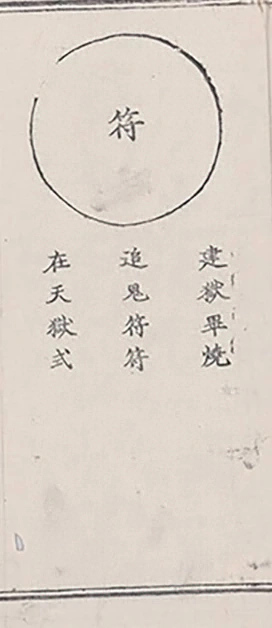 符
建獄畢燒
追鬼符符
在天獄式